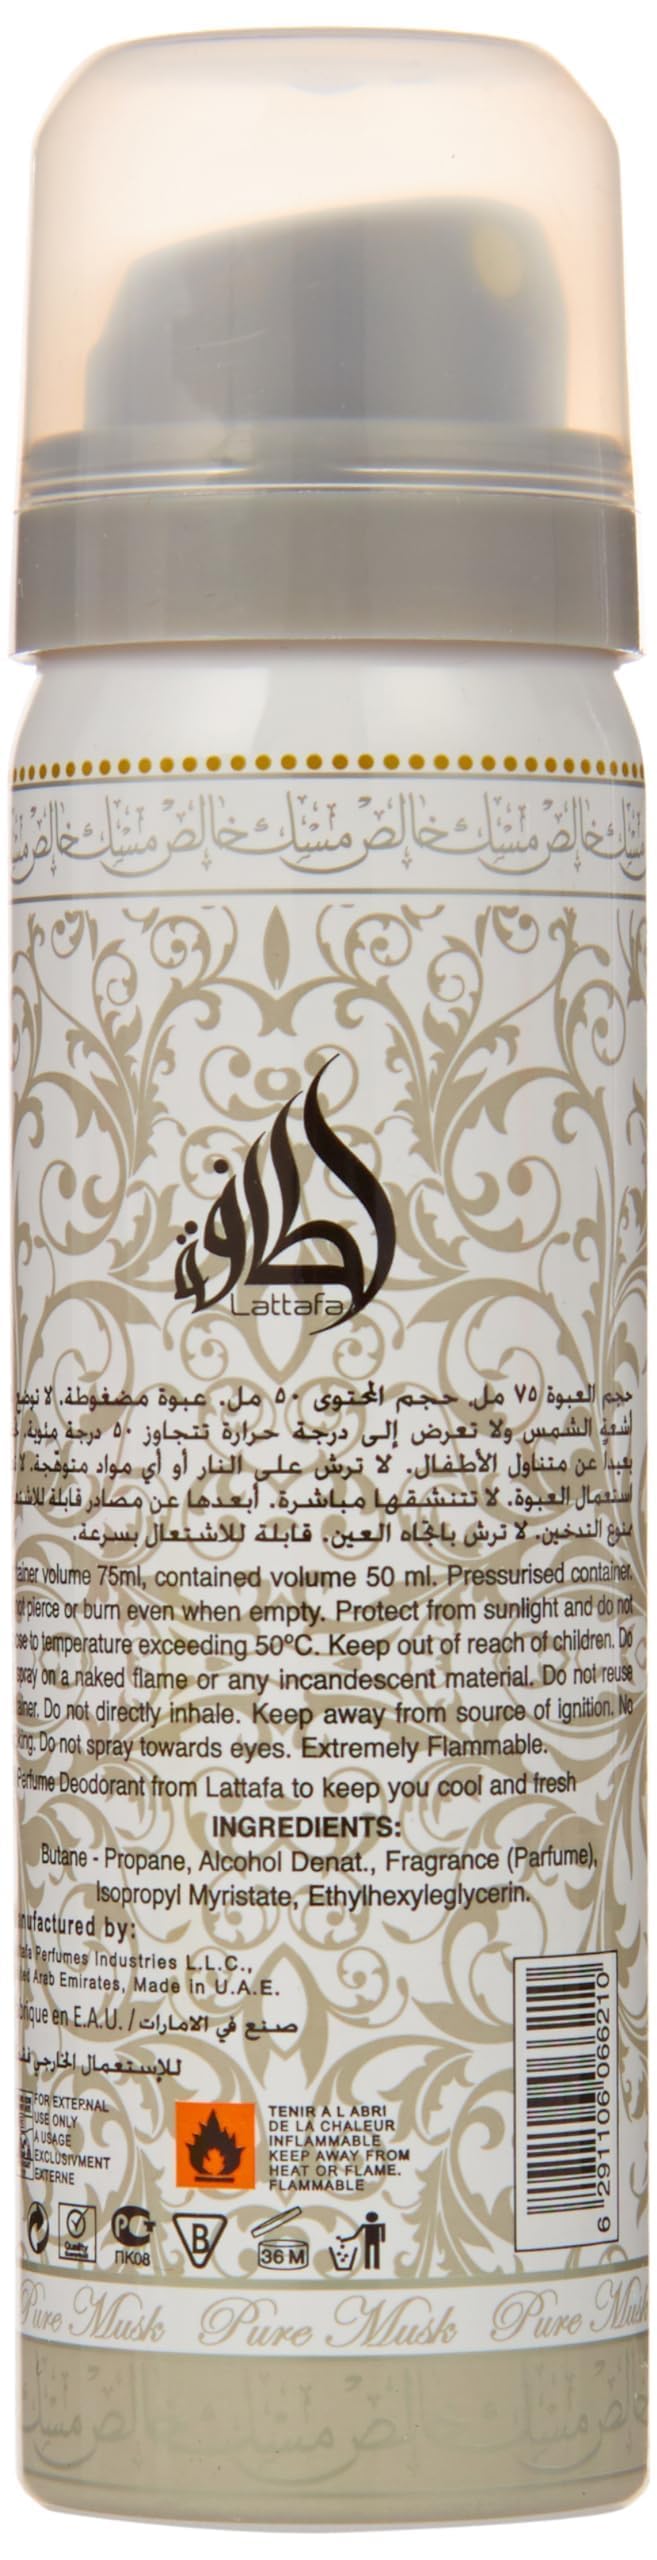 مسك خالص مسك خالص مسك خالص مسك
لطافة
Lattafa
حجم العبوة ٧٥ مل. حجم المحتوى ٥٠ مل. عبوة مضغوطة. لا
أشعة الشمس ولا تعرض إلى درجة حرارة تتجاوز ٥٠ درجة مئوية.
بعيداً عن متناول الأطفال. لا ترش على النار أو أي مواد متوهجة.
استعمال العبوة. لا تتنشقها مباشرة. أبعدها عن مصادر قابلة
التدخين. لا ترش باتجاه العين. قابلة للاشتعال بسرعة.
volume 75ml, contained volume 50 ml. Pressurised container.
pierce or burn even when empty. Protect from sunlight and do not
to temperature exceeding 50ºC. Keep out of reach of children. Do
spray on a naked flame or any incandescent material. Do not reuse
Do not directly inhale. Keep away from source of ignition. No
Do not spray towards eyes. Extremely Flammable.
Perfume Deodorant from Lattafa to keep you cool and fresh
INGREDIENTS:
Butane - Propane, Alcohol Denat., Fragrance (Parfume),
Isopropyl Myristate, Ethylhexyleglycerin.
by:
Perfumes Industries L.L.C.,
Arab Emirates, Made in U.A.E.
en E.A.U. / صنع في الامارات
للإستعمال الخارجي
FOR EXTERNAL
USE ONLY
A USAGE
EXCLUSIVMENT
EXTERNE
TENIR A L ABRI
DE LA CHALEUR
INFLAMMABLE
KEEP AWAY FROM
HEAT OR FLAME.
FLAMMABLE
6 291106 066210
Quality
ПК08
B
36 M
Pure Musk Pure Musk Pure Musk
مسك خالص مسك خالص مسك خالص